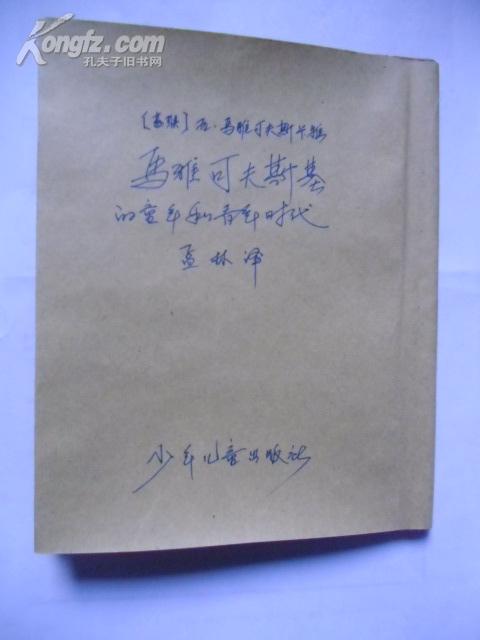 Kongfz.com
孔夫子旧书网
〔苏联〕 马雅可夫斯卡雅
马雅可夫斯基
的童年和青年时代
孟林 译
少年儿童出版社